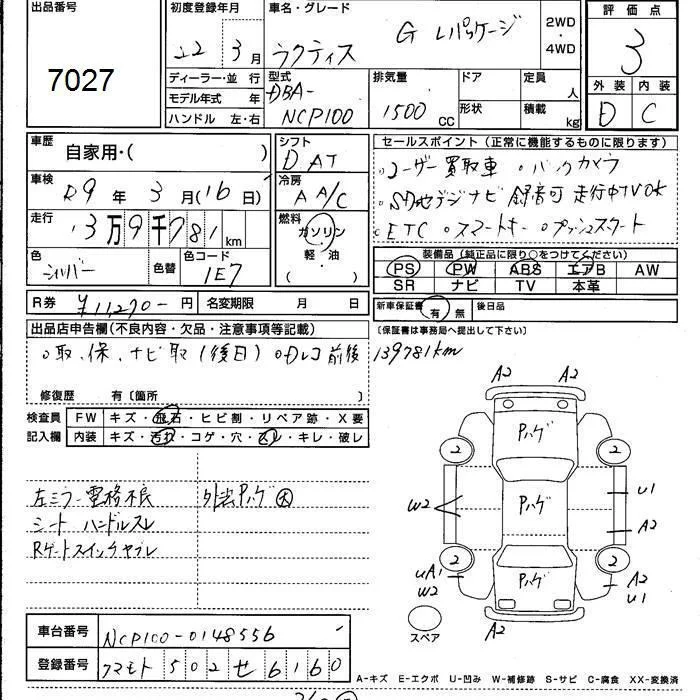 出品番号
7027
初度登録年月
22 3月
車名・グレード
ラクティス
G Lパッケージ
2WD
・
4WD
評価点
3
外装 内装
D C
ディーラー・並行
モデル年式 年
ハンドル 左・右
型式
DBA-
NCP100
排気量
1500 cc
ドア
形状
定員
人
積載
kg
車歴
自家用・( )
車検
R9年 3月(16日)
走行
13万9千781km
色
シルバー
色替
色コード
1E7
シフト
D AT
冷房
A A/C
燃料
ガソリン
・
軽油
( )
セールスポイント(正常に機能するものに限ります)
。ユーザー買取車 。バックカメラ
。SD地デジナビ 録音可 走行中TVOK
。ETC 。スマートキー 。プッシュスタート
装備品(純正品に限り○をつけてください)
PS PW ABS エアB AW
SR ナビ TV 本革
R券 ¥11,270-円
名変期限 月 日
新車保証書 有 無 後日品
〔保証書は事務局へ提出して下さい〕
出品店申告欄(不良内容・欠品・注意事項等記載)
。取、保、ナビ取(後日) 。Dレコ前後
139781km
修復歴 有〔箇所 〕
検査員 FW キズ・飛石・ヒビ割・リペア跡・X要
記入欄 内装 キズ・汚れ・コゲ・穴・スレ・キレ・破レ
左ミラー電格不良
外装Pハゲ大
シート ハンドルスレ
Rゲートスイッチヤブレ
A2 A2
Pハゲ
2 2
W2
Pハゲ
U1
A2
2 2
UA1
W2
Pハゲ
A2
U1
A2
スペア
車台番号 NCP100-0148556
登録番号 クマモト 502 せ 6160
A-キズ E-エクボ U-凹み W-補修跡 S-サビ C-腐食 XX-交換済